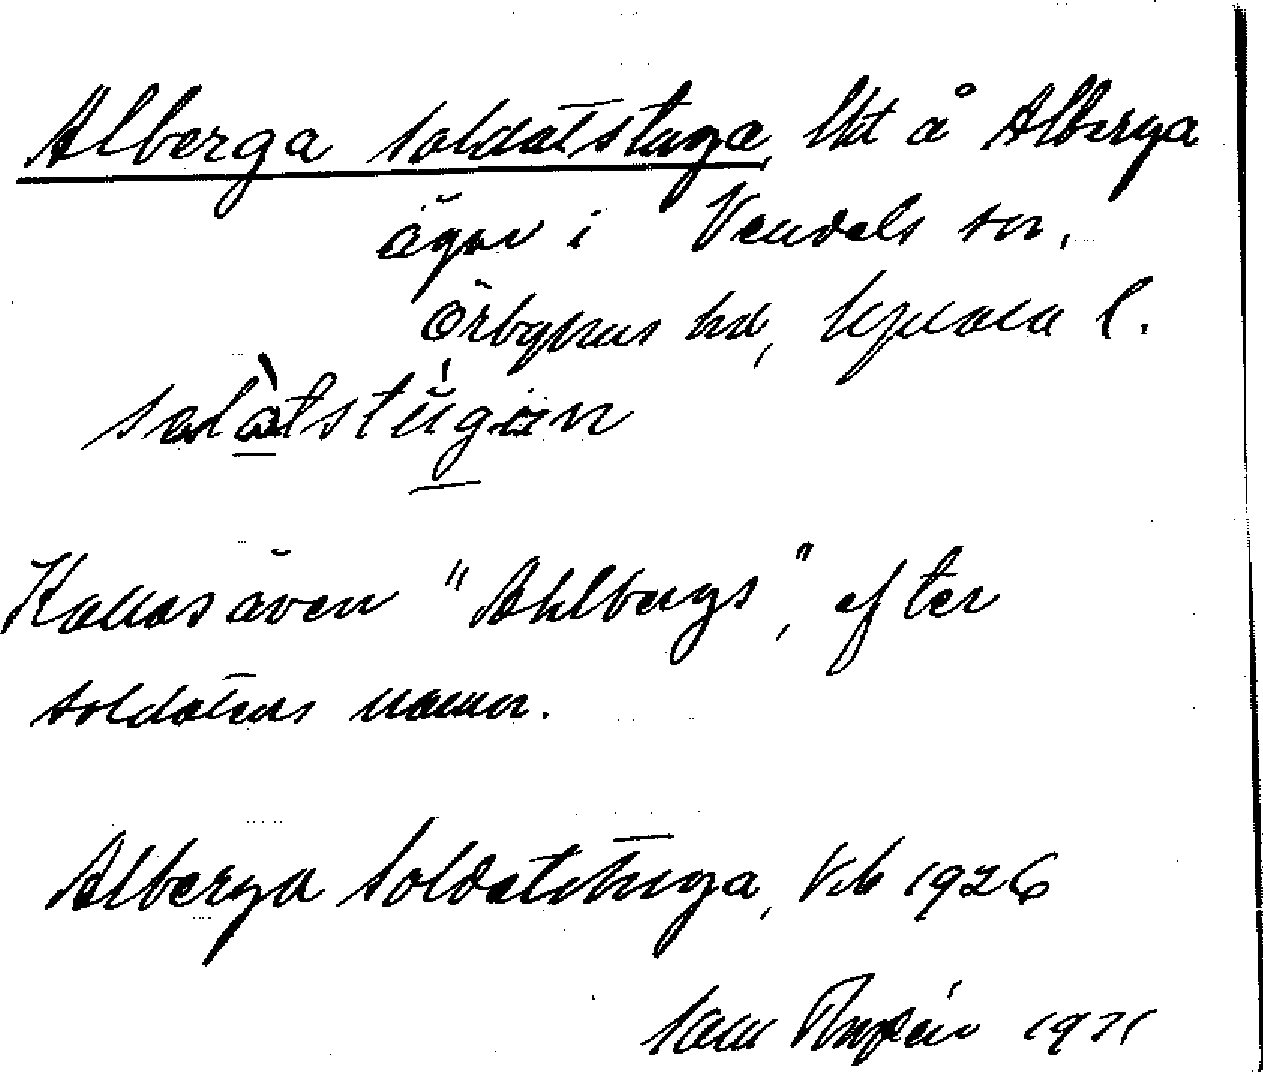 Alberga soldatstuga, lht å Alberga
ägor i Vendels sn,
Örbyhus hd, Uppsala l.
sɑlàtstúgɑn
Kallas även "Ahlbergs", efter
soldatens namn.
Alberga Soldatstuga, Vtb 1926
1971